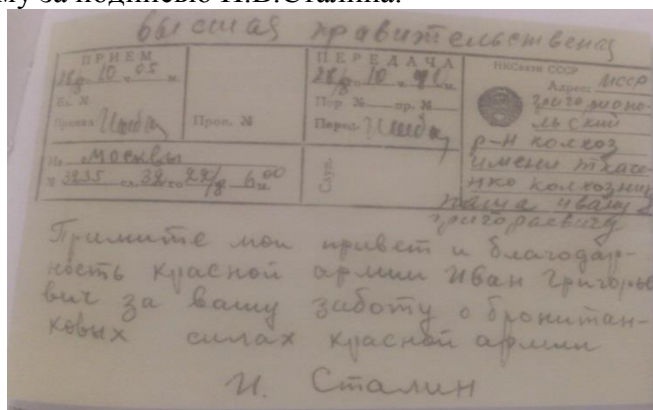 му за подписью И.В.Сталина.
высшая правительственая
ПРИЕМ
28/8 10 ч. 05 м.
Бл. №
Принял
Пров. №
ПЕРЕДАЧА
28/8 10
Пер. № пр. №
Перед.
НКСвязи СССР
Адрес: МССР
григориопо-
льский
р-н колхоз
имени ткаче-
нко колхозни
паша ивану
григораевичу
Из москвы
№ 3235 сл. 32 го 22/8 6 ч 00
Служ.
Примите мои привет и благодар-
ность красной армии Иван Григорье
вич за вашу заботу о бронитан-
ковых силах красной армии
И. Сталин